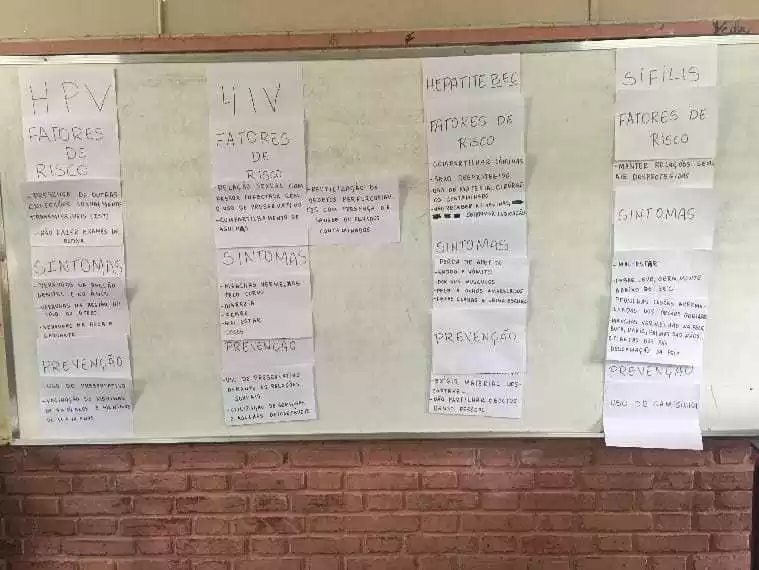 HPV
FATORES
DE
RISCO
- PRESENÇA DE OUTRAS
INFECÇÕES SEXUALMENTE
TRANSMISSÍVEIS (IST)
- NÃO FAZER EXAMES DE
ROTINA
SINTOMAS
- VERRUGAS NA REGIÃO
GENITAL E NO ÂNUS
- VERRUGAS NA REGIÃO DO
COLO DO ÚTERO
- VERRUGAS NA BOCA E
GARGANTA
PREVENÇÃO
- USO DE PRESERVATIVO
- VACINAÇÃO DE MENINAS
DE E MENINOS
DE
HIV
FATORES
DE
RISCO
RELAÇÃO SEXUAL COM
PESSOA INFECTADA SEM
O USO DE PRESERVATIVO
- COMPARTILHAMENTO DE
AGULHAS
- REUTILIZAÇÃO DE
OBJETOS PERFUROCORTAN
TES COM PRESENÇA DE
SANGUE OU FLUIDOS
CONTAMINADOS
SINTOMAS
- MANCHAS VERMELHAS
PELO CORPO
- DIARREIA
- FEBRE
- MAL ESTAR
- TOSSE
PREVENÇÃO
- USO DE PRESERVATIVO
DURANTE AS RELAÇÕES
SEXUAIS
- UTILIZAÇÃO DE SERINGAS
E AGULHAS DESCARTÁVEIS
HEPATITE B E C
FATORES DE
RISCO
COMPARTILHAR LÂMINAS
- SEXO DESPROTEGIDO
USO DE MATERIAL CIRÚRGI
CO CONTAMINADO
- NÃO RECEBER AS VACINAS
SINTOMAS
- PERDA DE APETITE
- ENJOO E VÔMITO
- DOR NOS MÚSCULOS
- PELE E OLHOS AMARELADOS
- FEZES CLARAS E URINA ESCURA
PREVENÇÃO
- EXIGIR MATERIAL DES-
CARTÁVEL
- NÃO PARTILHAR OBJETOS
DE USO PESSOAL
SÍFILIS
FATORES DE
RISCO
- MANTER RELAÇÕES SEXU
AIS DESPROTEGIDAS
SINTOMAS
- MAL-ESTAR
- FEBRE LEVE, GERALMENTE
ABAIXO DE 38°C
PEQUENAS LESÕES AVERME-
LHADAS NOS ÓRGÃOS GENITAIS
MANCHAS VERMELHAS NA PELE
BOCA, NARIZ, PALMAS DAS MÃOS
E PLANTAS DOS PÉS
DESCAMAÇÃO DA PELE
PREVENÇÃO
USO DE CAMISINHA